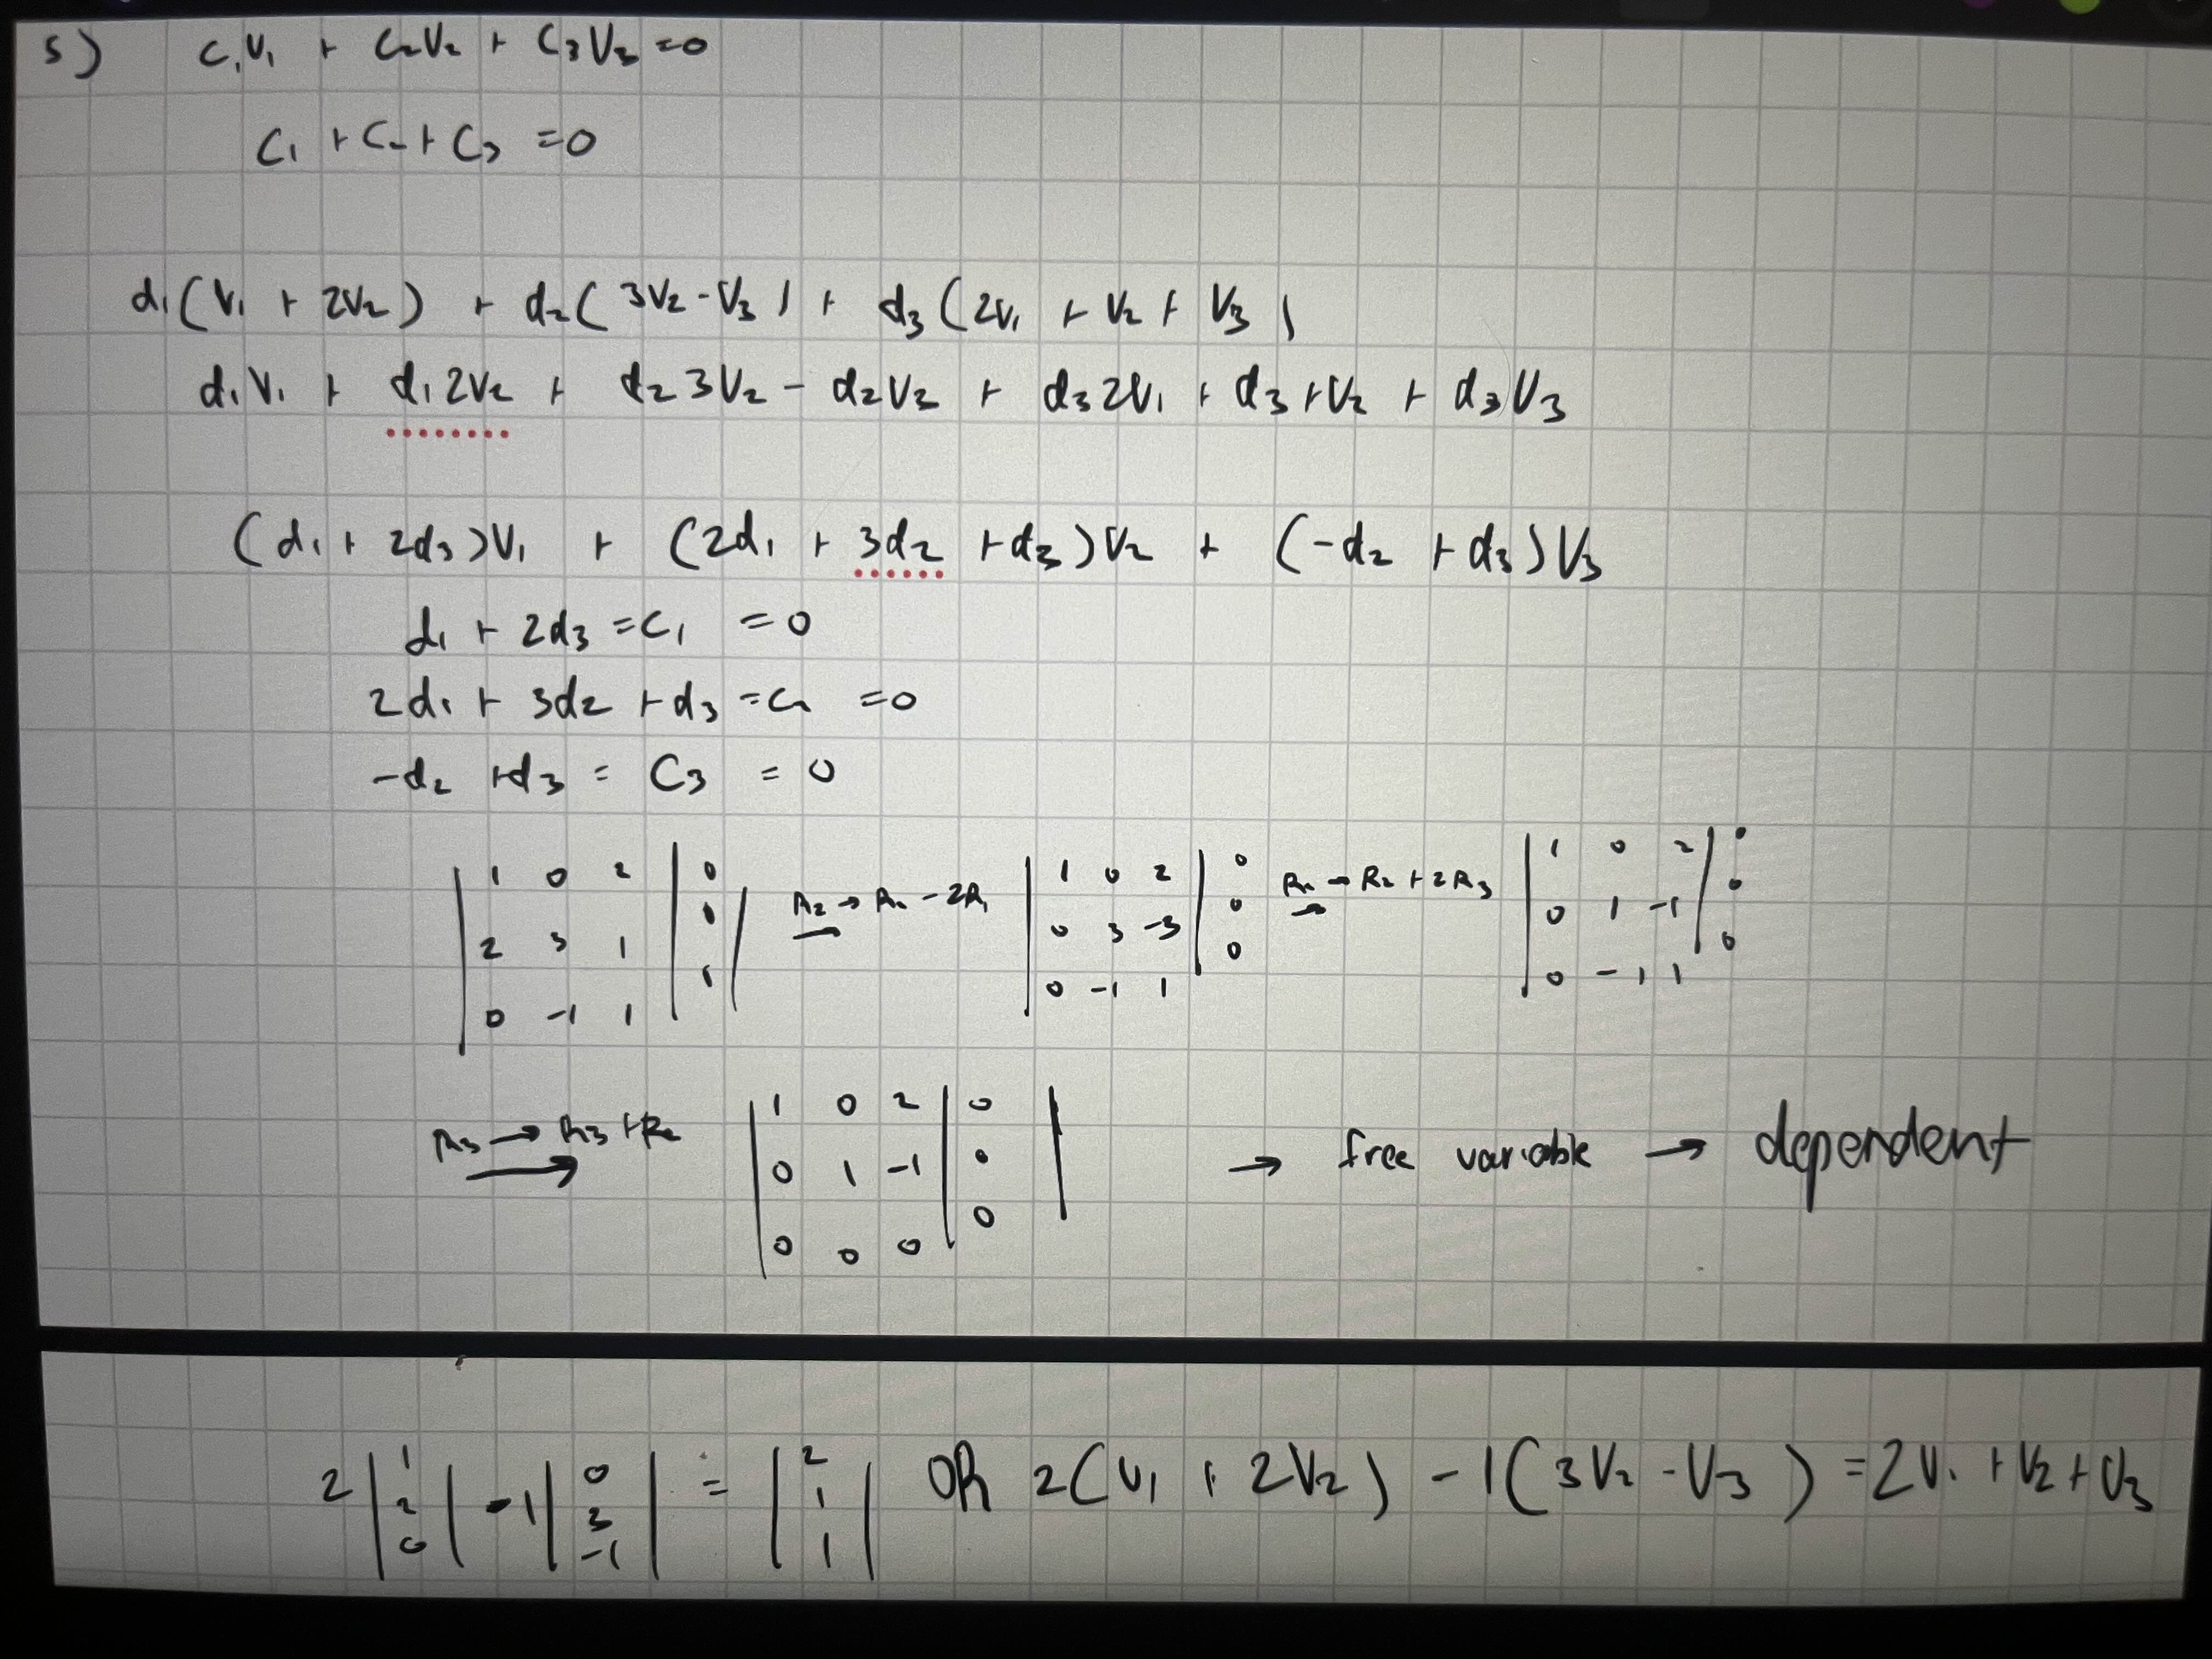 5) C₁V₁ + C₂V₂ + C₃V₃ =0
C₁ + C₂ + C₃ =0
d₁(V₁ + 2V₂) + d₂(3V₂-V₃) + d₃(2V₁ + V₂ + V₃)
d₁V₁ + d₁2V₂ + d₂3V₂ - d₂V₃ + d₃2V₁ + d₃+V₂ + d₃V₃
(d₁ + 2d₃)V₁ + (2d₁ + 3d₂ +d₃)V₂ + (-d₂ +d₃)V₃
d₁ + 2d₃ =C₁ =0
2d₁ + 3d₂ +d₃ =C₂ =0
-d₂ +d₃ = C₃ = 0
| 1 0 2 | 0 | R₂→R₂-2R₁ | 1 0 2 | 0 R₂→R₂+2R₃ | 1 0 2 | 0
| 2 3 1 | 0 | | 0 3 -3 | 0 | 0 1 -1 | 0
| 0 -1 1 | | | 0 -1 1 | 0 | 0 -1 1 | 0
R₃→R₃+R₂ | 1 0 2 | 0 |
| 0 1 -1 | 0 | → free variable → dependent
| 0 0 0 | 0 |
2|1 2 0| -1|0 3 -1| = |2 1 1| OR 2(V₁ + 2V₂) -1(3V₂-V₃) =2V₁ +V₂+V₃